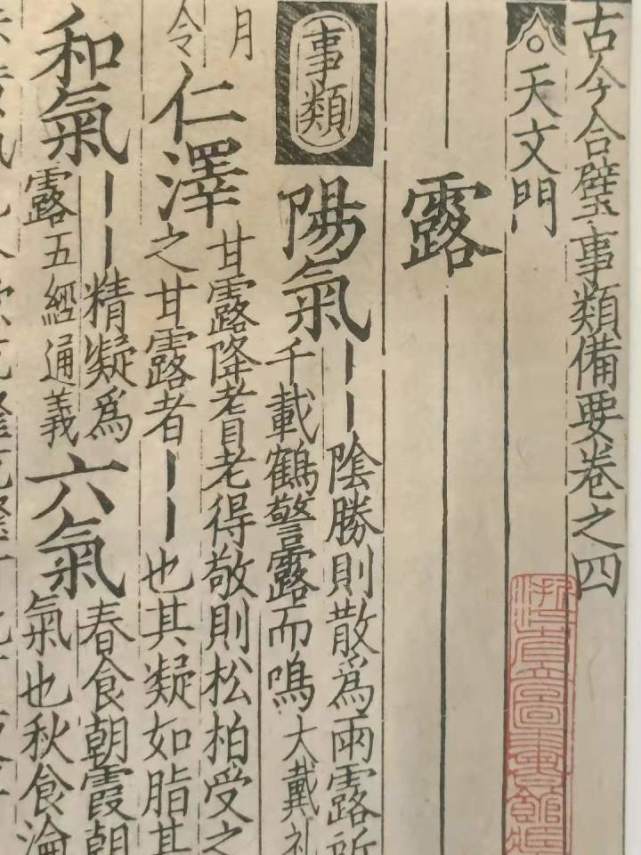 古今合璧事類備要卷之四
天文門
露
事類
陽氣
丨丨陰勝則散爲雨露
千載鶴警露而鳴大戴礼
月
令
仁澤
甘露降耆老得敬則松柏受之
之甘露者丨丨也其凝如脂其
和氣
丨丨精凝爲
露五經通義
六氣
春食朝霞朝
氣也秋食淪